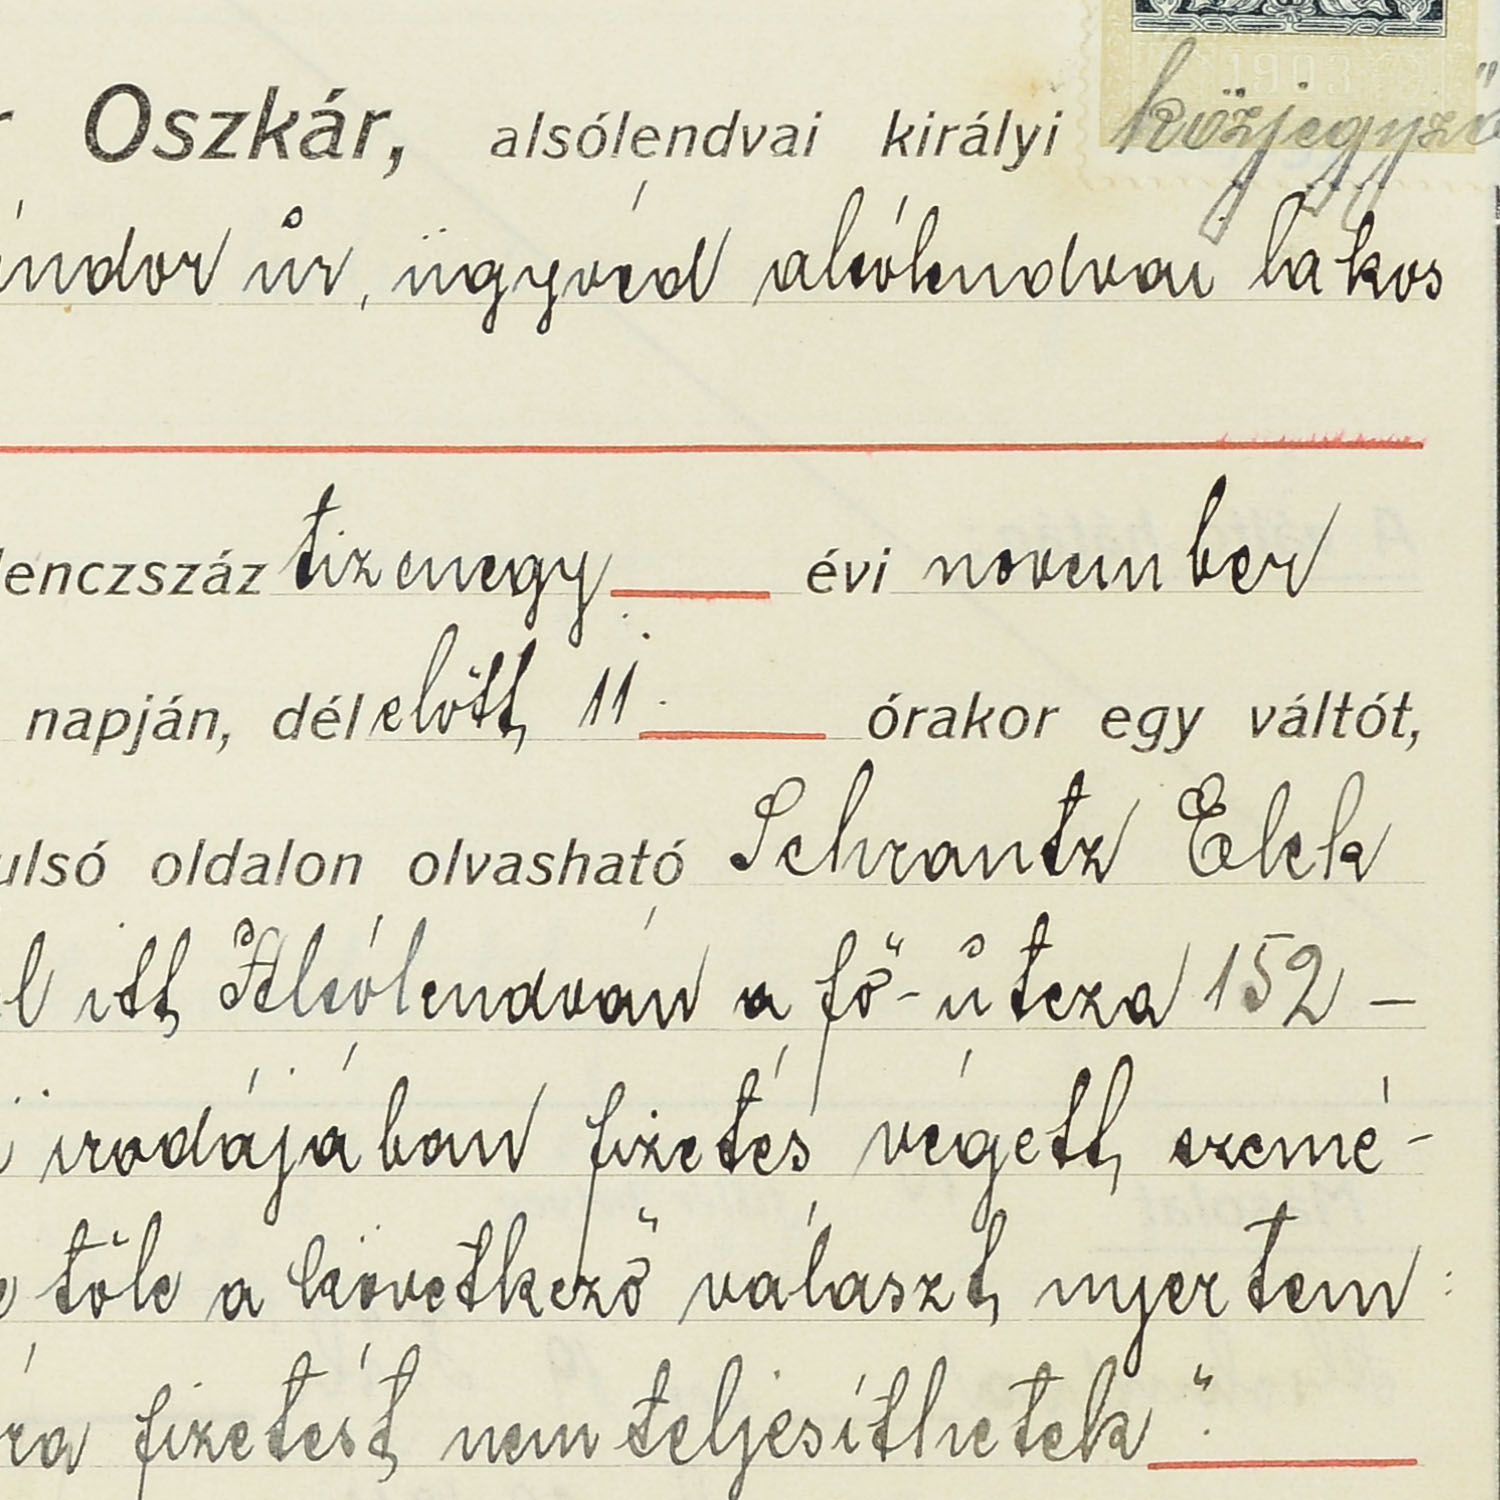 1903
Oszkár, alsólendvai királyi közjegyző
úr, ügyvéd alsólendvai lakos
tizenegy évi november
napján, délelőtt 11. órakor egy váltót,
oldalon olvasható Schrantz Elek
itt Alsólendván a fő-útcza 152 –
irodájában fizetés végett, szemé-
tőle a következő választ nyertem:
fizetést nem teljesíthetek".